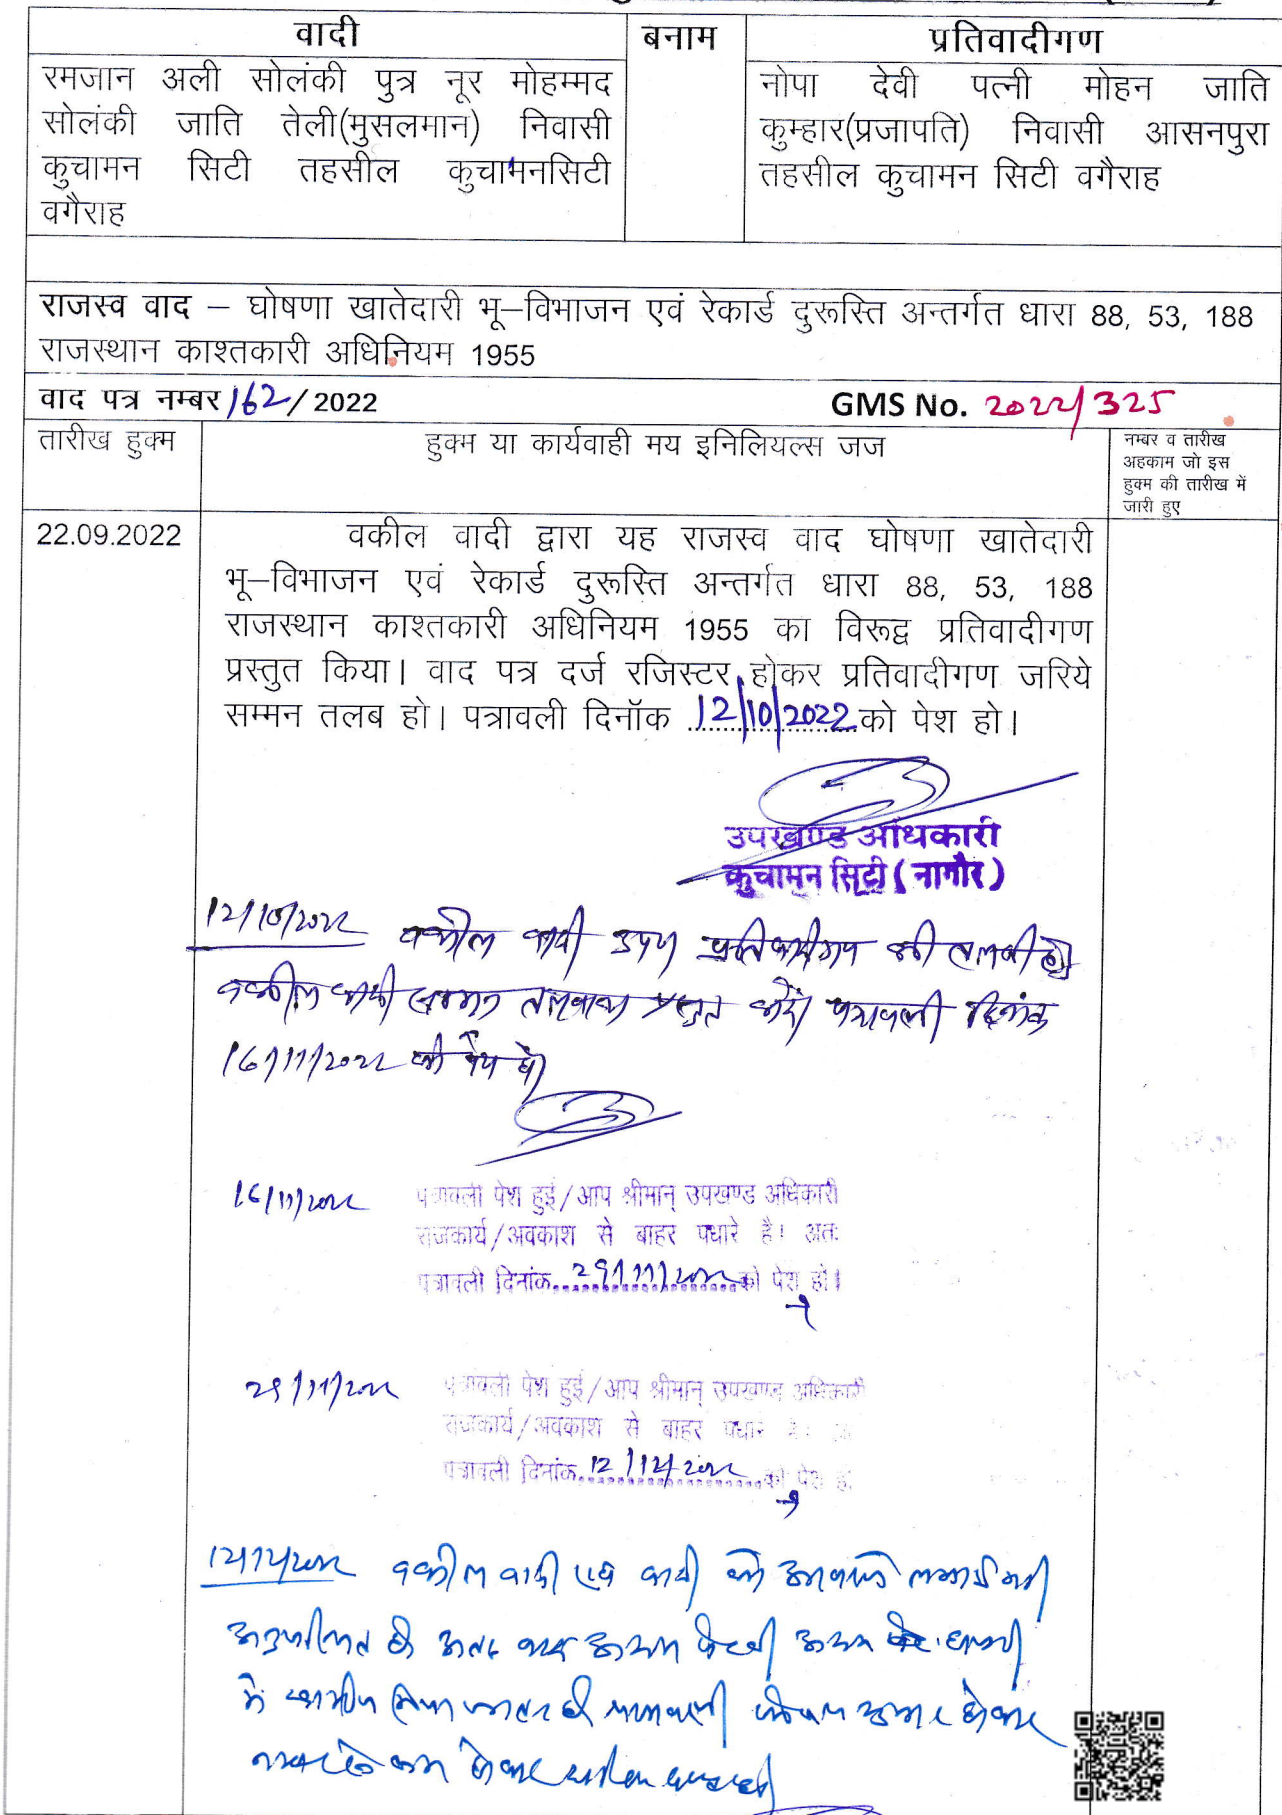 वादी
बनाम
प्रतिवादीगण
रमजान अली सोलंकी पुत्र नूर मोहम्मद
सोलंकी जाति तेली(मुसलमान) निवासी
कुचामन सिटी तहसील कुचामनसिटी
वगैराह
नोपा देवी पत्नी मोहन जाति
कुम्हार(प्रजापति) निवासी आसनपुरा
तहसील कुचामन सिटी वगैराह
राजस्व वाद – घोषणा खातेदारी भू–विभाजन एवं रेकार्ड दुरूस्ति अन्तर्गत धारा 88, 53, 188
राजस्थान काश्तकारी अधिनियम 1955
वाद पत्र नम्बर 162/2022 GMS No. 2022/325
तारीख हुक्म
हुक्म या कार्यवाही मय इनिलियल्स जज
नम्बर व तारीख
अहकाम जो इस
हुक्म की तारीख में
जारी हुए
22.09.2022
वकील वादी द्वारा यह राजस्व वाद घोषणा खातेदारी
भू–विभाजन एवं रेकार्ड दुरूस्ति अन्तर्गत धारा 88, 53, 188
राजस्थान काश्तकारी अधिनियम 1955 का विरूद्व प्रतिवादीगण
प्रस्तुत किया। वाद पत्र दर्ज रजिस्टर होकर प्रतिवादीगण जरिये
सम्मन तलब हो। पत्रावली दिनॉक 12/10/2022 को पेश हो।
उपखण्ड अधिकारी
कुचामन सिटी (नागौर)
12/10/2022 वकील वादी उपण प्रतिवादीगण की तलबी हो
वकील वादी सम्मन तलवाना प्रस्तुत करें। पत्रावली दिनांक
16/11/2022 को पेश हो
16/11/2022 पत्रावली पेश हुई/आप श्रीमान् उपखण्ड अधिकारी
राजकार्य/अवकाश से बाहर पधारे है। अतः
पत्रावली दिनांक 29/11/2022 को पेश हो।
29/11/2022 पत्रावली पेश हुई/आप श्रीमान् उपखण्ड अधिकारी
राजकार्य/अवकाश से बाहर पधारे
पत्रावली दिनांक 12/12/2022 को पेश हो
12/12/2022 वकील वादी एवं वादी को आवाजे लगाई गयी